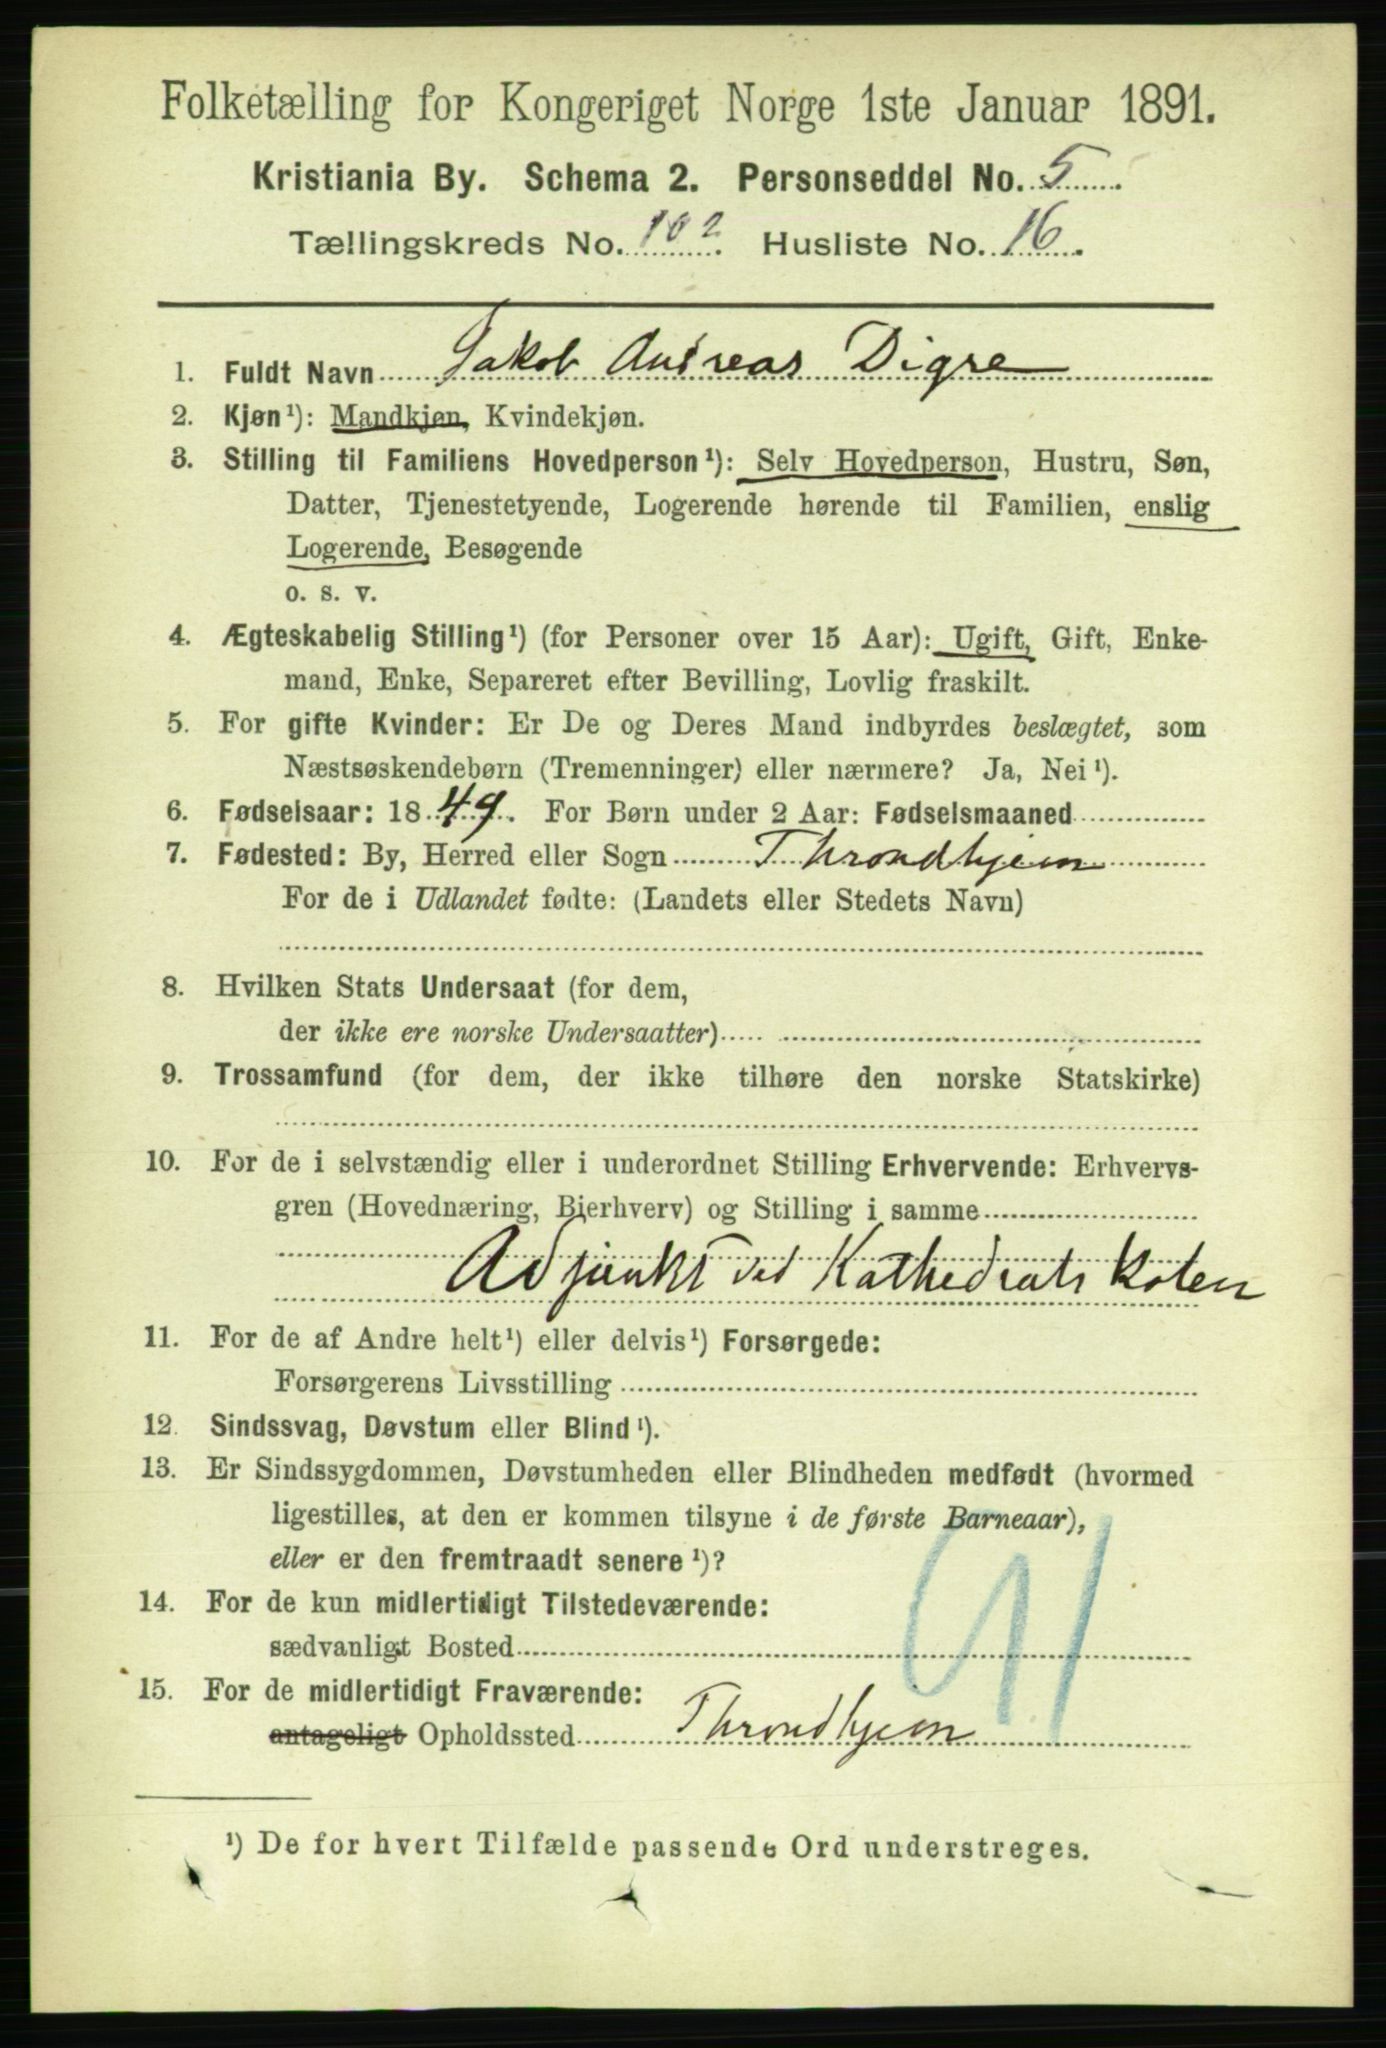 Folketælling for Kongeriget Norge 1ste Januar 1891.
Kristiania By. Schema 2. Personseddel No. 5.
Tællingskreds No. 102. Husliste No. 16.
1. Fuldt Navn Jakob Andreas Digre
2. Kjøn¹): Mandkjøn, Kvindekjøn.
3. Stilling til Familiens Hovedperson¹): Selv Hovedperson, Hustru, Søn,
Datter, Tjenestetyende, Logerende hørende til Familien, enslig
Logerende, Besøgende
o. s. v.
4. Ægteskabelig Stilling¹) (for Personer over 15 Aar): Ugift, Gift, Enke-
mand, Enke, Separeret efter Bevilling, Lovlig fraskilt.
5. For gifte Kvinder: Er De og Deres Mand indbyrdes beslægtet, som
Næstsøskendebørn (Tremenninger) eller nærmere? Ja, Nei¹).
6. Fødselsaar: 1849. For Børn under 2 Aar: Fødselsmaaned
7. Fødested: By, Herred eller Sogn Throndhjem
For de i Udlandet fødte: (Landets eller Stedets Navn)
8. Hvilken Stats Undersaat (for dem,
der ikke ere norske Undersaatter)
9. Trossamfund (for dem, der ikke tilhøre den norske Statskirke)
10. For de i selvstændig eller i underordnet Stilling Erhvervende: Erhvervs-
gren (Hovednæring, Bierhverv) og Stilling i samme
Adjunkt ved Kathedralskolen
11. For de af Andre helt¹) eller delvis¹) Forsørgede:
Forsørgerens Livsstilling
12. Sindssvag, Døvstum eller Blind¹).
13. Er Sindssygdommen, Døvstumheden eller Blindheden medfødt (hvormed
ligestilles, at den er kommen tilsyne i de første Barneaar),
eller er den fremtraadt senere¹)?
14. For de kun midlertidigt Tilstedeværende:
sædvanligt Bosted
91
15. For de midlertidigt Fraværende:
antageligt Opholdssted Throndhjem
¹) De for hvert Tilfælde passende Ord understreges.